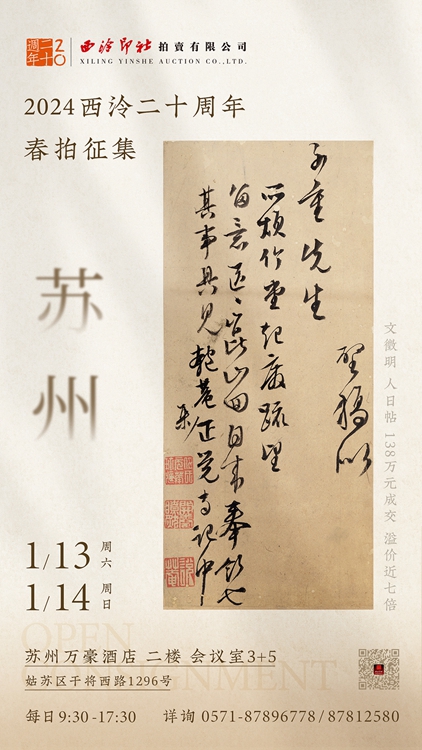 二十週年 20 西泠印社 拍賣有限公司
XILING YINSHE AUCTION CO.,LTD.
2024西泠二十周年
春拍征集
苏州
子重先生
所烦竹堂起废疏望
留意
其事具见
文徵明 人日帖 138万元成交 溢价近七倍
1/13 周六
1/14 周日
OPEN
CONSIGNMENT
苏州万豪酒店 二楼 会议室3+5
姑苏区干将西路1296号
每日9:30-17:30 详询 0571-87896778/87812580